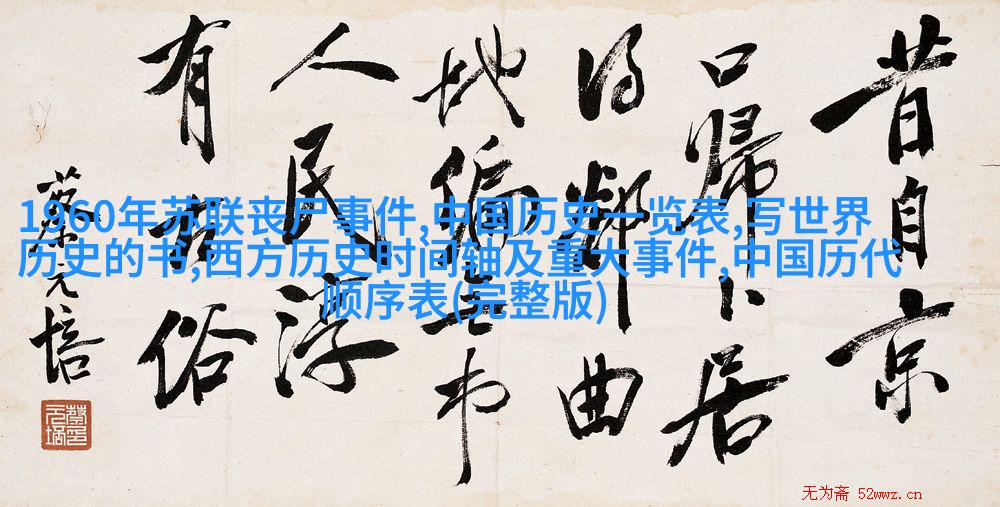 昔自京
口歸卜居
得鄰曲
地偏無市
人民淳
有俗
蔡元培
1960年苏联丧尸事件,中国历史一览表,写世界
历史的书,西方历史时间轴及重大事件,中国历代
顺序表(完整版)
无为斋 52wwz.cn